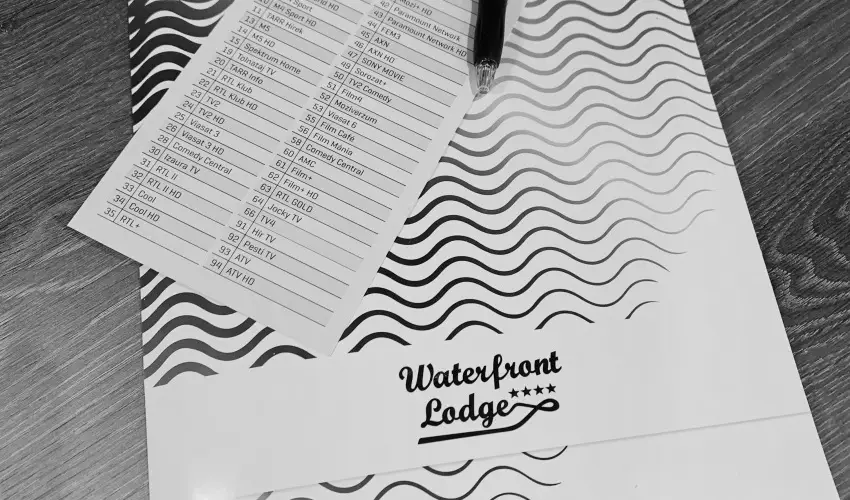 M4 Sport
10 M4 Sport HD
11 TARR Hírek
13 M5
14 M5 HD
15 Spektrum Home
19 Tolnatáj TV
20 TARR Info
21 RTL Klub
22 RTL Klub HD
23 TV2
24 TV2 HD
25 Viasat 3
26 Viasat 3 HD
28 Comedy Central
30 Izaura TV
31 RTL II
32 RTL II HD
33 Cool
34 Cool HD
35 RTL+
Mozi+ HD
42 Paramount Network
43 Paramount Network HD
44 FEM3
45 AXN
46 AXN HD
47 SONY MOVIE
49 Sorozat+
50 TV2 Comedy
51 Film4
52 Moziverzum
53 Viasat 6
55 Film Café
56 Film Mánia
58 Comedy Central
60 AMC
61 Film+
62 Film+ HD
63 RTL GOLD
64 Jocky TV
66 TV4
91 Hír TV
92 Pesti TV
93 ATV
94 ATV HD
Waterfront
Lodge